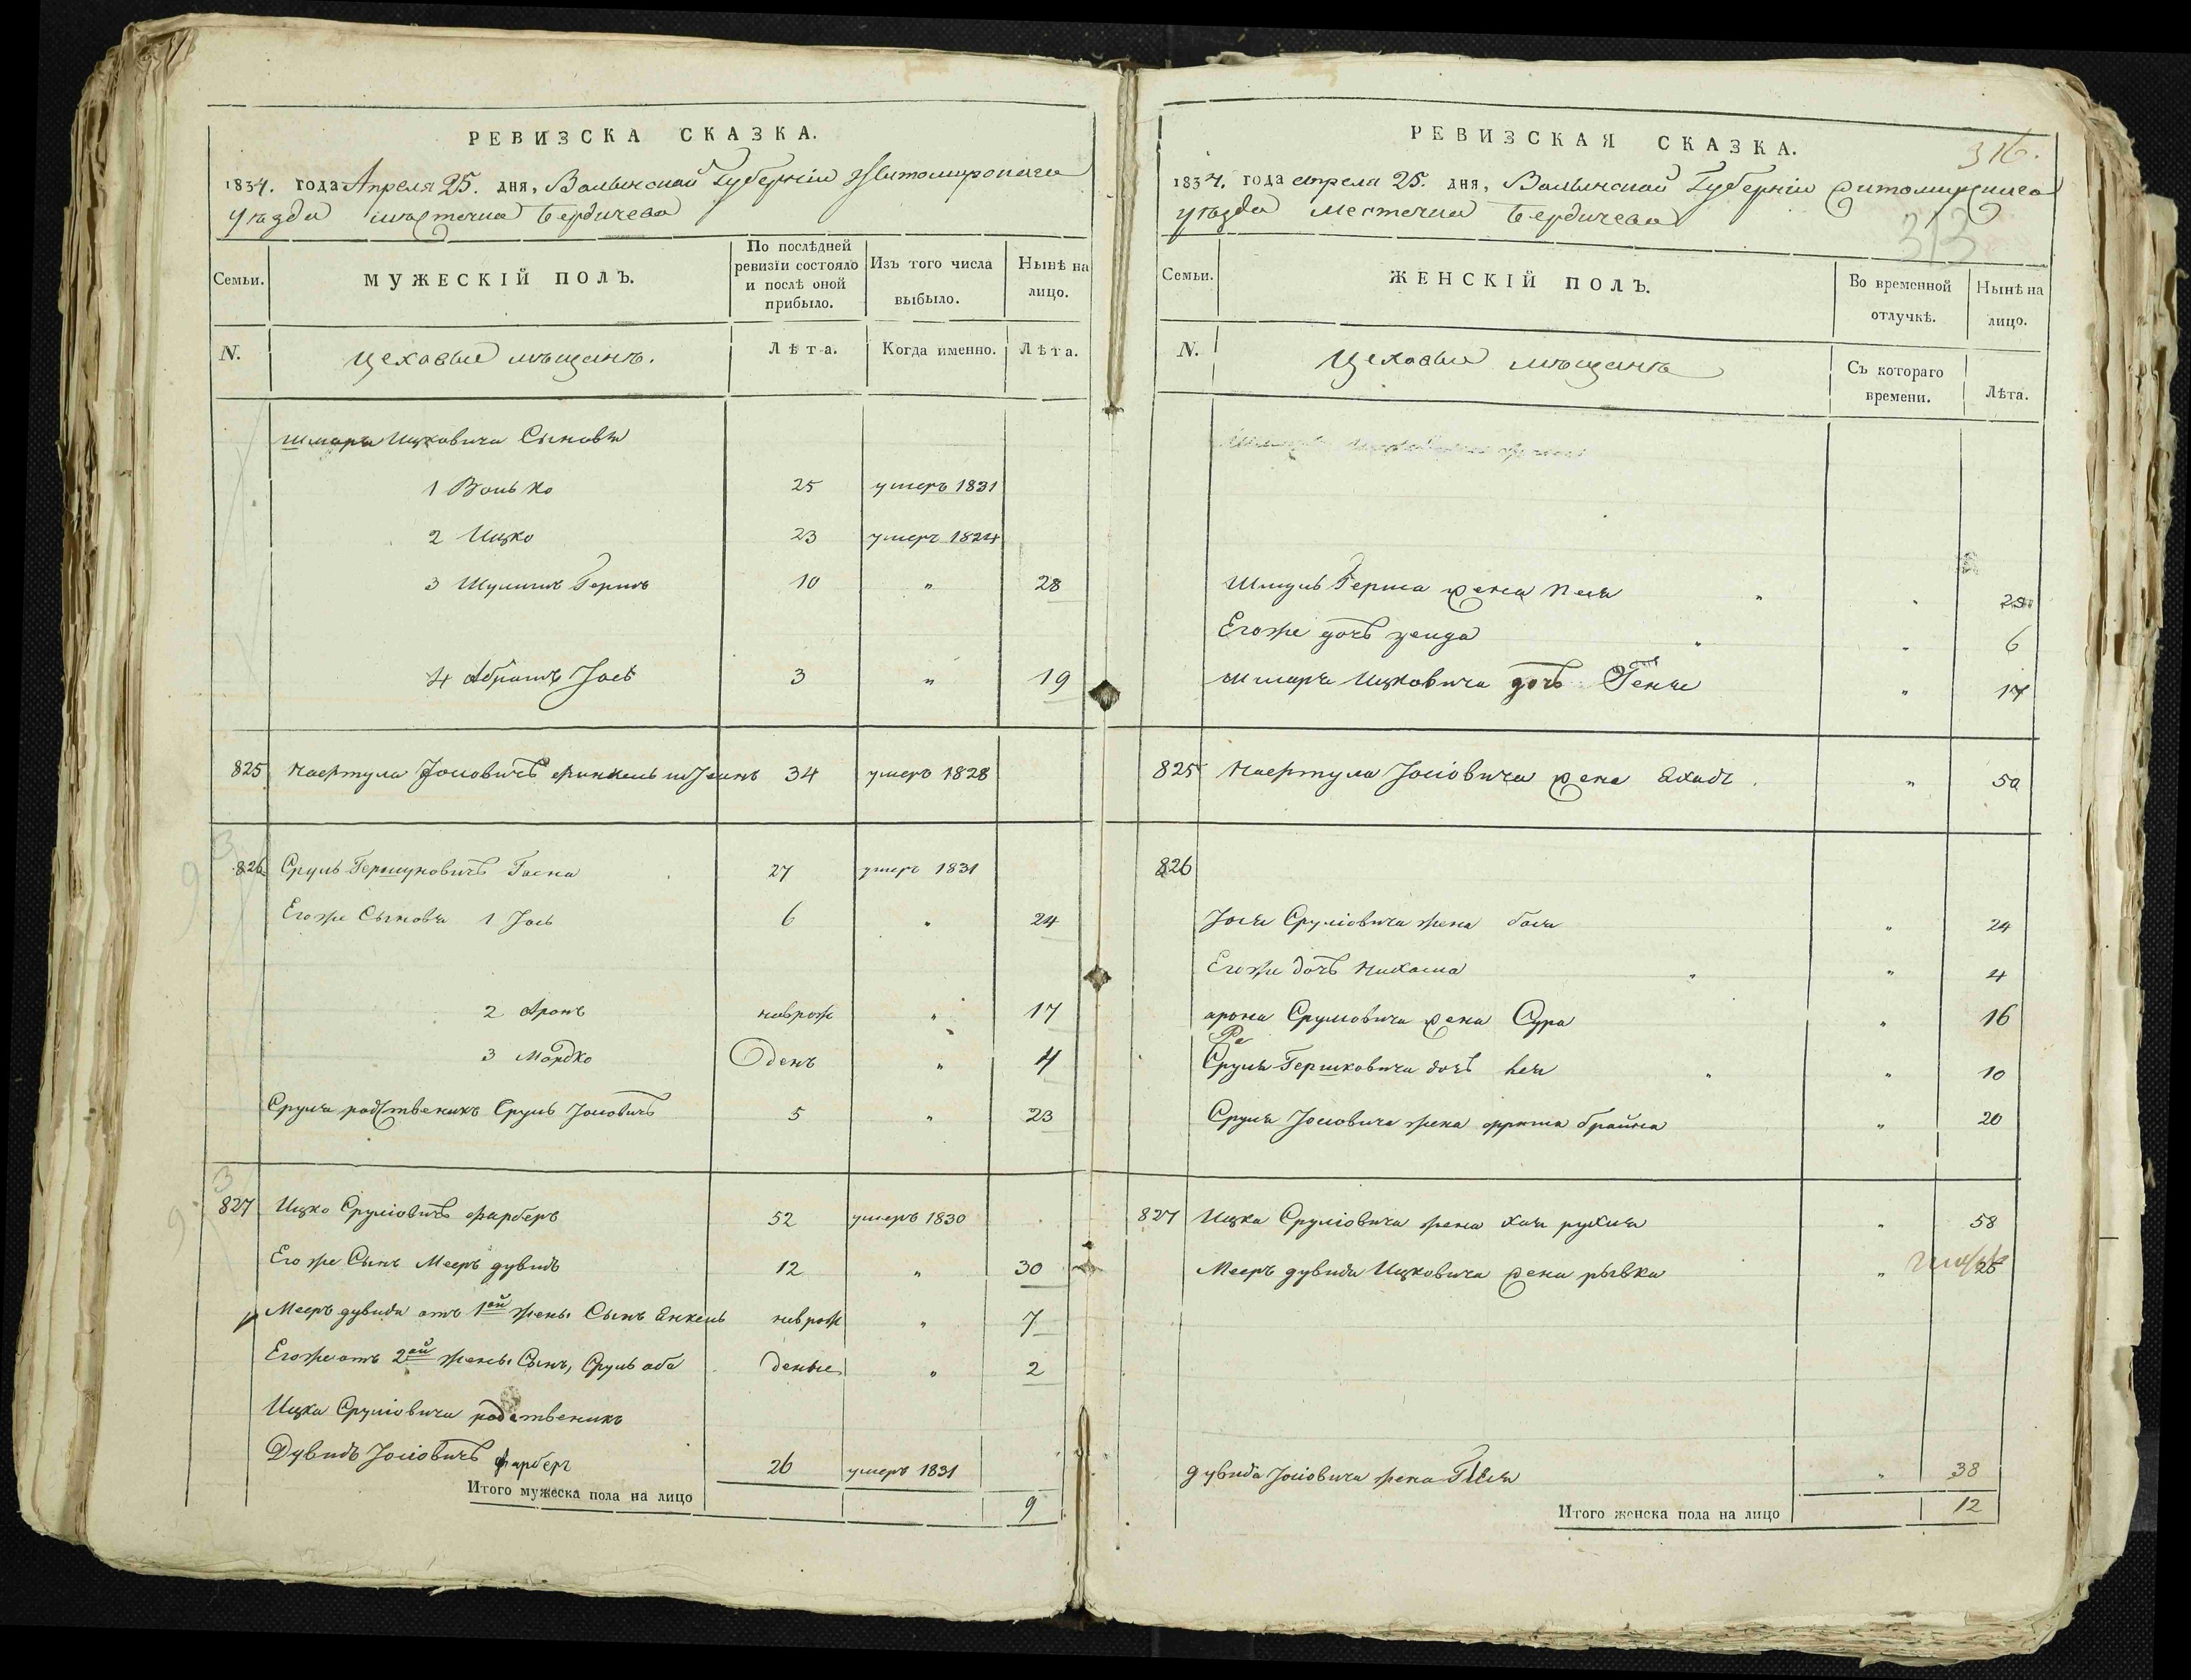 РЕВИЗСКА СКАЗКА.
1834. года Апреля 25. дня, Волынской Губерніи Житомирскаго
уѣзда местечка Бердичева
Семьи. МУЖЕСКІЙ ПОЛЪ. По послѣдней ревизіи состояло и послѣ оной прибыло. Изъ того числа выбыло. Нынѣ на лицо.
N. Цеховые мѣщанѣ. Лѣта. Когда именно. Лѣта.
Шмара Ицковича Сыновя
1 Волько 25 умеръ 1831
2 Ицко 23 умеръ 1824
3 Шулимъ Гершъ 10 " 28
4 Абрамъ Іось 3 " 19
825 Іосіовичъ 34 умеръ 1828
826 Сруль Гершуновичъ 27 умеръ 1831
Егоже Сыновя 1 Іось 6 " 24
2 Аронъ наврож " 17
3 Мордко Денъ " 4
Сруля родственикъ Сруль Іосіовичъ 5 " 23
827 Ицко Сруліовичъ Фарберъ 52 умеръ 1830
Его же Сынъ Мееръ дувидъ 12 " 30
Мееръ дувида отъ 1ой жены Сынъ Енкель наврож " 7
Егоже отъ 2ой жены Сынъ, Сруль аба деные " 2
Ицка Сруліовича родственикъ
Дувидъ Іосіовичъ Фарберъ 26 умеръ 1831
Итого мужеска пола на лицо 9
РЕВИЗСКАЯ СКАЗКА.
316.
1834. года апреля 25. дня, Волынской Губерніи Житомирскаго
313
уѣзда местечка Бердичева
Семьи. ЖЕНСКІЙ ПОЛЪ. Во временной отлучкѣ. Нынѣ на лицо.
N. Цеховые мѣщанѣ Съ котораго времени. Лѣта.
Герша жена Песя " "
Егоже дочъ " " 6
Шмара Ицковича дочъ Геня " 17
825 Іосіовича жена " 50
826
Іося Сруліовича жена бася " 24
Егоже дочъ " " 4
арона Сруліовича жена Сура " 16
Сруля Гершковича дочъ " " 10
Сруля Іосіовича жена брайна " 20
827 Ицка Сруліовича жена хая рухля " 58
Мееръ дувида Ицковича жена рывка " 26
дувида Іосіовича жена " 38
Итого женска пола на лицо 12